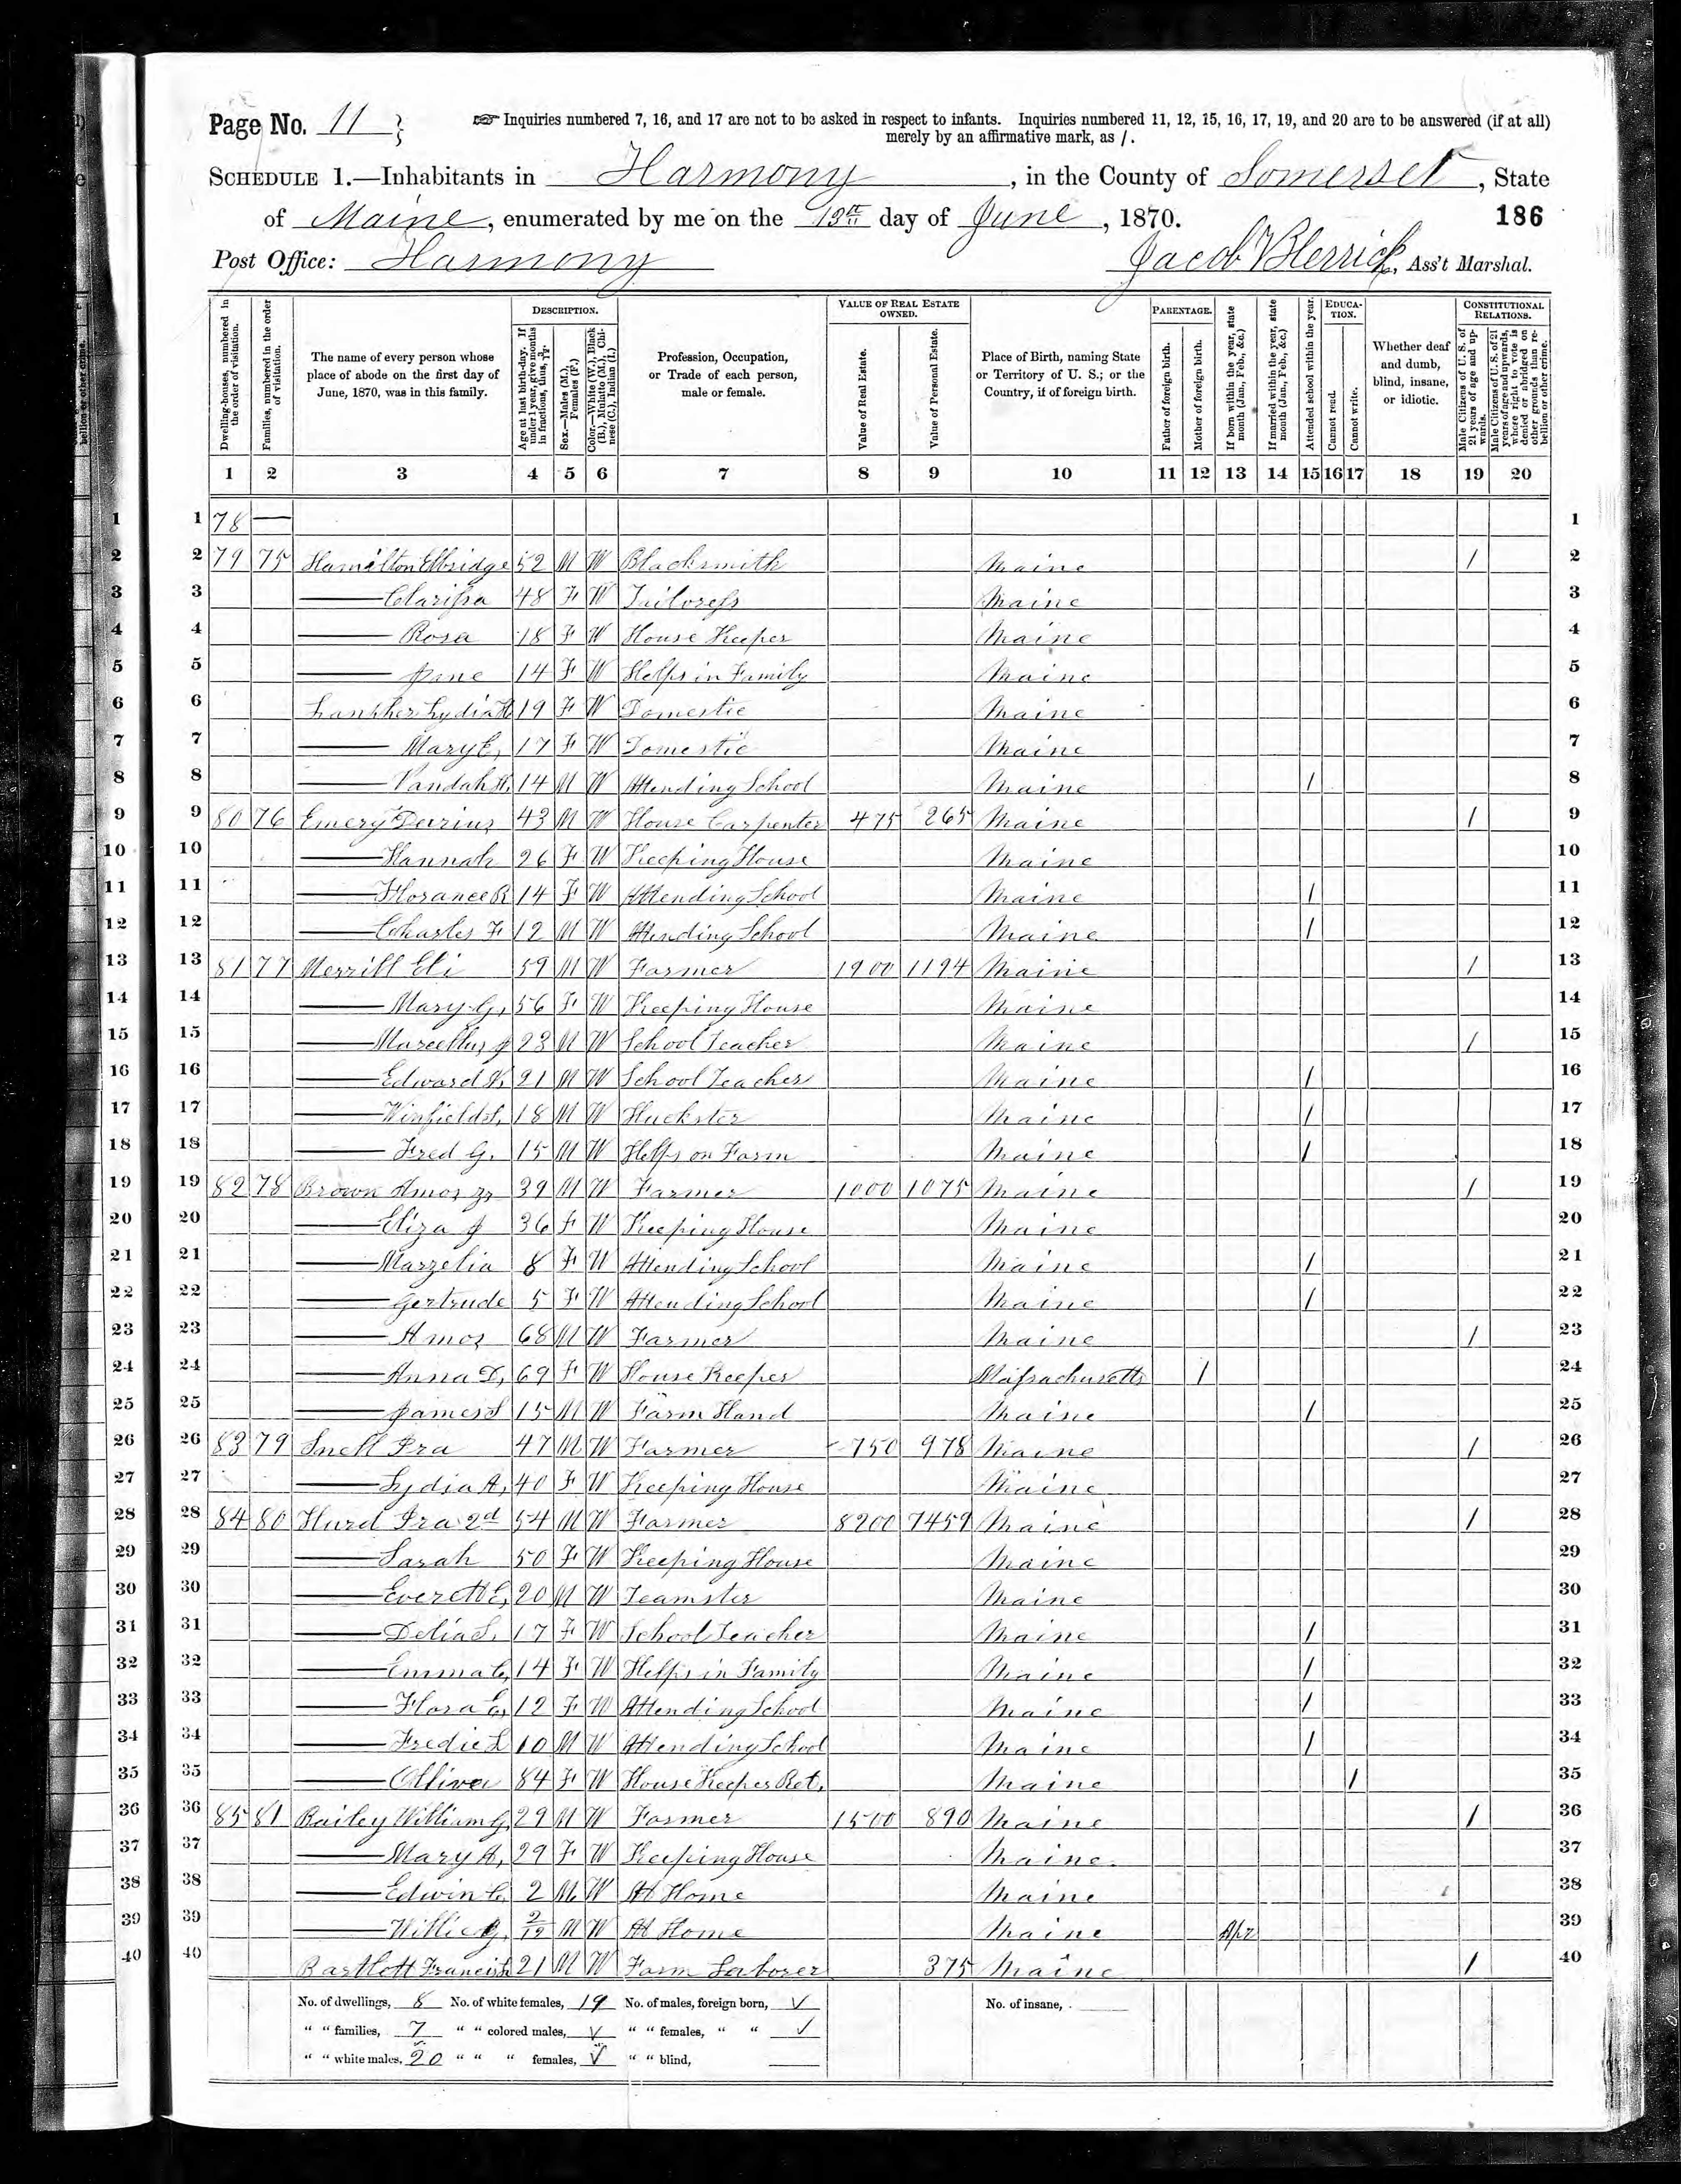 Page No. 11
☞ Inquiries numbered 7, 16, and 17 are not to be asked in respect to infants. Inquiries numbered 11, 12, 15, 16, 17, 19, and 20 are to be answered (if at all)
merely by an affirmative mark, as /.
SCHEDULE 1.—Inhabitants in Harmony, in the County of Somerset, State
of Maine, enumerated by me on the 13th day of June, 1870. 186
Post Office: Harmony Jacob V Herrick, Ass't Marshal.
Dwelling-houses, numbered in the order of visitation.
Families, numbered in the order of visitation.
The name of every person whose place of abode on the first day of June, 1870, was in this family.
DESCRIPTION.
Age at last birth-day. If under 1 year, give months in fractions, thus, 3/12.
Sex.—Males (M.), Females (F.)
Color.—White (W.), Black (B.), Mulatto (M.), Chinese (C.), Indian (I.)
Profession, Occupation, or Trade of each person, male or female.
VALUE OF REAL ESTATE OWNED.
Value of Real Estate.
Value of Personal Estate.
Place of Birth, naming State or Territory of U. S.; or the Country, if of foreign birth.
PARENTAGE.
Father of foreign birth.
Mother of foreign birth.
If born within the year, state month (Jan., Feb., &c.)
If married within the year, state month (Jan., Feb., &c.)
Attended school within the year.
EDUCATION.
Cannot read.
Cannot write.
Whether deaf and dumb, blind, insane, or idiotic.
CONSTITUTIONAL RELATIONS.
Male Citizens of U. S. of 21 years of age and upwards.
Male Citizens of U. S. of 21 years of age and upwards, whose right to vote is denied or abridged on other grounds than rebellion or other crime.
1 2 3 4 5 6 7 8 9 10 11 12 13 14 15 16 17 18 19 20
1 78 — 1
2 79 75 Hamilton Elbridge 52 M W Blacksmith Maine / 2
3 — Clarissa 48 F W Tailoress Maine 3
4 — Rosa 18 F W House Keeper Maine 4
5 — Jane 14 F W Helps in Family Maine 5
6 Lydia 19 F W Domestic Maine 6
7 — Mary E, 17 F W Domestic Maine 7
8 — 14 M W Attending School Maine / 8
9 80 76 Emery Darius 43 M W House Carpenter 475 265 Maine / 9
10 — Hannah 26 F W Keeping House Maine 10
11 — Florance R 14 F W Attending School Maine / 11
12 — Charles F 12 M W Attending School Maine / 12
13 81 77 Merrill Eli 59 M W Farmer 1900 1194 Maine / 13
14 — Mary G, 56 F W Keeping House Maine 14
15 — Marcellus J 23 M W School Teacher Maine / 15
16 — Edward K, 21 M W School Teacher Maine / 16
17 — Winfield S, 18 M W Huckster Maine / 17
18 — Fred G. 15 M W Helps on Farm Maine / 18
19 82 78 Brown Amos Jr 39 M W Farmer 1000 1075 Maine / 19
20 — Eliza J 36 F W Keeping House Maine 20
21 — Marzelia 8 F W Attending School Maine / 21
22 — Gertrude 5 F W Attending School Maine / 22
23 — Amos 68 M W Farmer Maine / 23
24 — Anna D, 69 F W House Keeper Massachusetts / 24
25 — James S 15 M W Farm Hand Maine / 25
26 83 79 Snell Ira 47 M W Farmer 750 978 Maine / 26
27 — Lydia A, 40 F W Keeping House Maine 27
28 84 80 Hurd Ira 2d 54 M W Farmer 8200 7459 Maine / 28
29 — Sarah 50 F W Keeping House Maine 29
30 — Everett E, 20 M W Teamster Maine 30
31 — Delia S. 17 F W School Teacher Maine / 31
32 — Emma C, 14 F W Helps in Family Maine / 32
33 — Flora E, 12 F W Attending School Maine / 33
34 — Fredie L 10 M W Attending School Maine / 34
35 — Ollive 84 F W House Keeper Ret. Maine / 35
36 85 81 Bailey William G, 29 M W Farmer 1500 890 Maine / 36
37 — Mary A, 29 F W Keeping House Maine 37
38 — Edwin C. 2 M W At Home Maine 38
39 — Willie G, 2/12 M W At Home Maine Apr 39
40 Bartlett Francis L 21 M W Farm Laborer 375 Maine / 40
No. of dwellings, 8 No. of white females, 19 No. of males, foreign born, ✓ No. of insane,
" " families, 7 " " colored males, ✓ " " females, " " ✓
" " white males, 20 " " " females, ✓ " " blind,